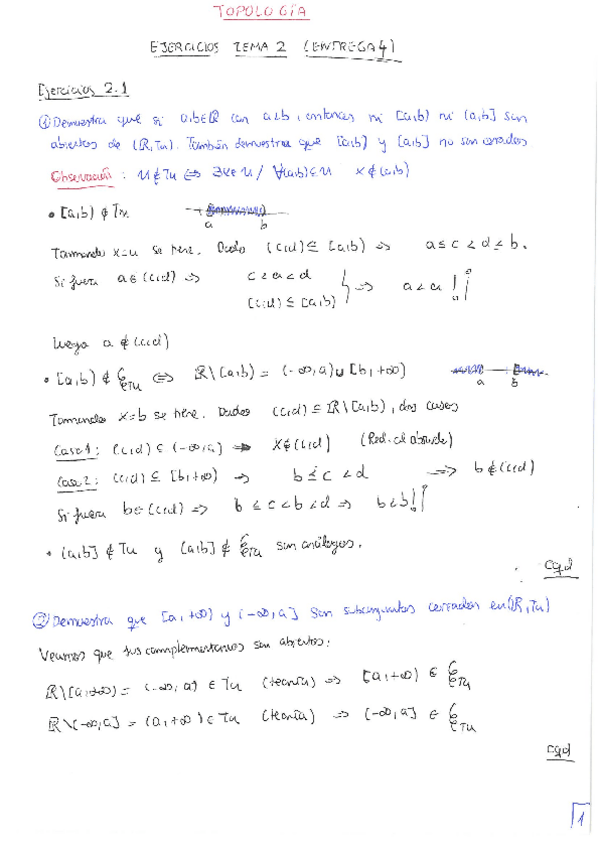 TOPOLOGÍA
EJERCICIOS TEMA 2 (ENTREGA 4)
Ejercicios 2.1
① Demuestra que si a,b∈ℝ con a<b, entonces ni [a,b) ni (a,b] son
abiertos de (ℝ,Tu). También demuestra que [a,b) y (a,b] no son cerrados.
Observación: U∉Tu ⇔ ∃x∈U / ∀(a,b)⊆U x∉(a,b)
• [a,b) ∉ Tu.
a b
Tomando x=a se tiene. Dado (c,d)⊆[a,b) ⇒ a≤c<d≤b.
Si fuera a∈(c,d) ⇒ c<a<d
(c,d)⊆[a,b) } ⇒ a<a !!
Luego a∉(c,d)
• [a,b) ∉ C_Tu ⇔ ℝ\[a,b) = (-∞,a)∪[b,+∞)
a b
Tomando x=b se tiene. Dados (c,d)⊆ℝ\[a,b), dos casos
Caso 1: (c,d)⊆(-∞,a) ⇒ x∉(c,d) (Red. al absurdo)
Caso 2: (c,d)⊆[b,+∞) ⇒ b≤c<d ⇒ b∉(c,d)
Si fuera b∈(c,d) ⇒ b≤c<b<d ⇒ b<b !!
• (a,b] ∉ Tu y (a,b] ∉ C_Tu son análogos.
cqd
② Demuestra que [a,+∞) y (-∞,a] son subconjuntos cerrados en (ℝ,Tu)
Veamos que sus complementarios son abiertos:
ℝ\[a,+∞) = (-∞,a) ∈ Tu (teoría) ⇒ [a,+∞) ∈ C_Tu
ℝ\(-∞,a] = (a,+∞) ∈ Tu (teoría) ⇒ (-∞,a] ∈ C_Tu
cqd
1